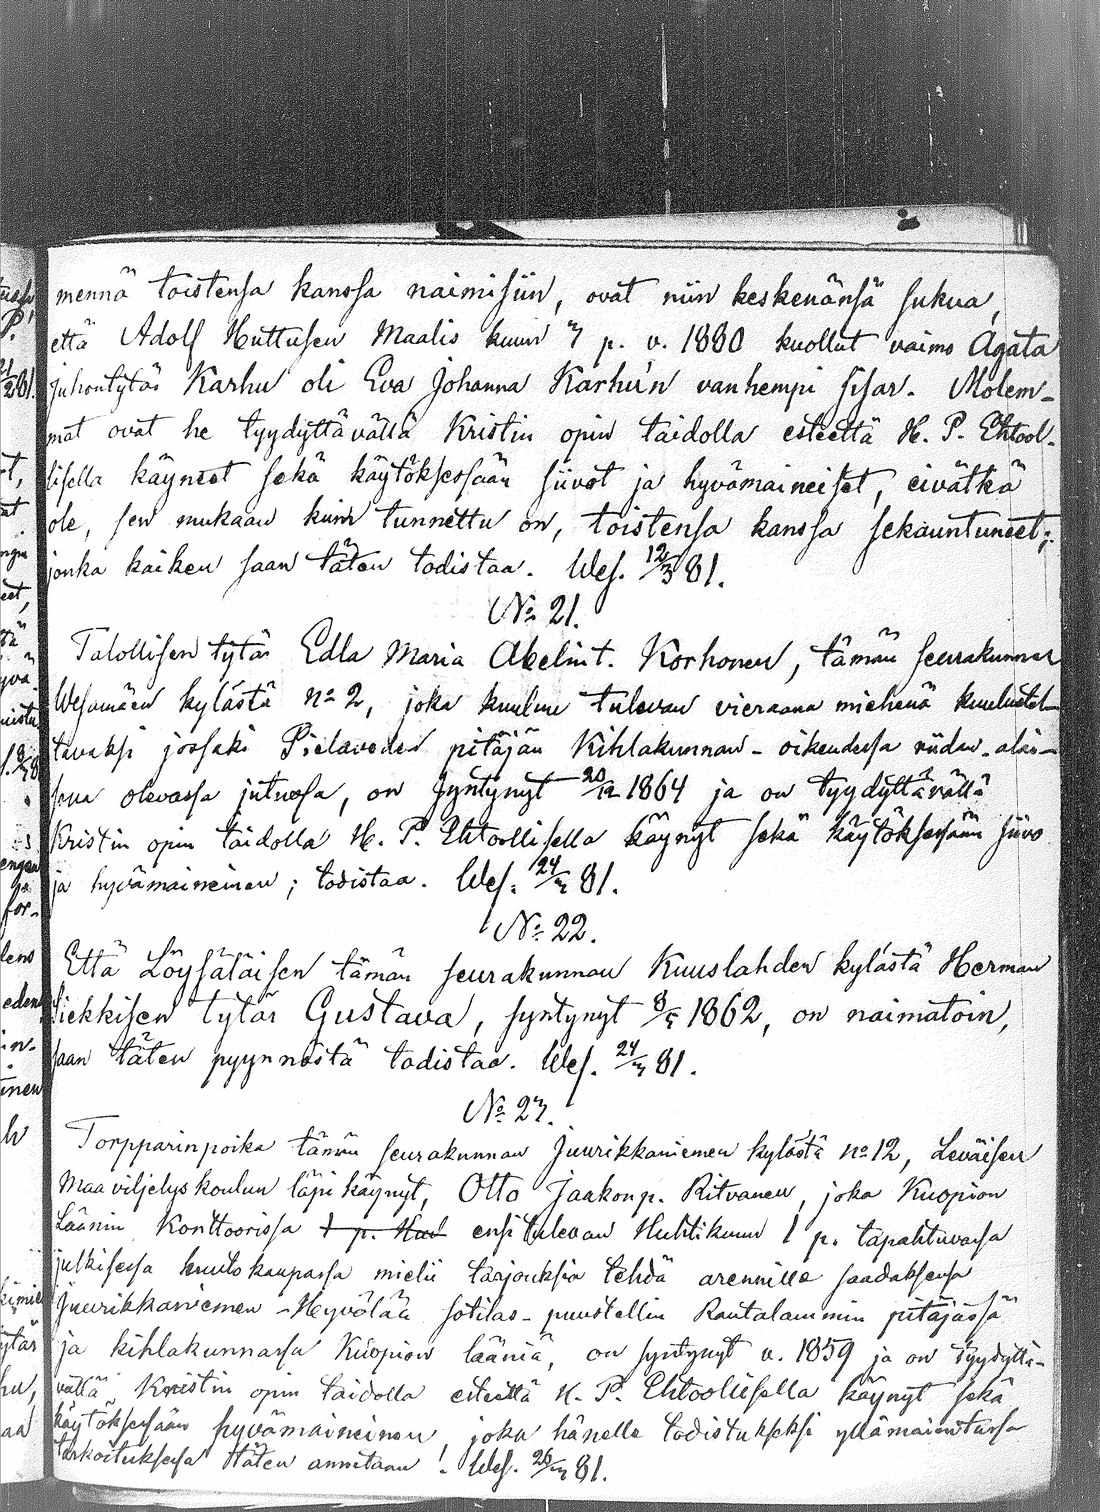 mennä toistensa kanssa naimisiin, ovat niin keskenänsä sukua,
että Adolf Huttusen Maalis kuun 7 p. v. 1880 kuollut vaimo Agata
juhontytär Karhu oli Eva Johanna Karhu'n vanhempi sisar. Molem-
mat ovat he tyydyttävällä Kristin opin taidolla esteettä H. P. Ehtool-
lisella käyneet sekä käytöksessään siivot ja hyvämaineiset, eivätkä
ole, sen mukaan kuin tunnettu on, toistensa kanssa sekauntuneet;
jonka kaiken saan täten todistaa. Wes. 12/3 81.
No 21.
Talollisen tytär Edla Maria Abelint. Korhonen, tämän seurakunnan
Wesamäen kylästä no 2, joka kuuluu tulevan vieraana miehenä kuulustel-
tavaksi jossaki Pielaveden pitäjän Kihlakunnan-oikeudessa riidan-alai-
sena olevassa jutussa, on syntynyt 20/12 1864 ja on tyydyttävällä
Kristin opin taidolla H. P. Ehtoollisella käynyt sekä käytöksessään siivo
ja hyvämaineinen; todistaa. Wes. 24/3 81.
No 22.
Että Löysäläisen tämän seurakunnan Kuuslahden kylästä Herman
Siekkisen tytär Gustava, syntynyt 8/5 1862, on naimatoin,
saan täten pyynnöstä todistaa. Wes. 24/3 81.
No 23.
Torpparinpoika tämän seurakunnan Juurikkaniemen kylästä no 12, Leväisen
Maaviljelyskoulun läpi käynyt, Otto Jaakonp. Ritvanen, joka Kuopion
Läänin Konttoorissa 1 p. Huh ensi tulevan Huhtikuun 1 p. tapahtuvassa
julkisessa huutokaupassa mielii tarjouksia tehdä arennille saadaksensa
Juurikkaniemen-Hyvölän sotilas-puustellin Rautalammin pitäjässä
ja kihlakunnassa Kuopion lääniä, on syntynyt v. 1859 ja on tyydyttä-
vällä Kristin opin taidolla esteettä H. P. Ehtoolisella käynyt sekä
käytöksessään hyvämaineinen, joka hänelle todistukseksi yllämainitussa
tarkoituksessa täten annetaan. Wes. 26/3 81.